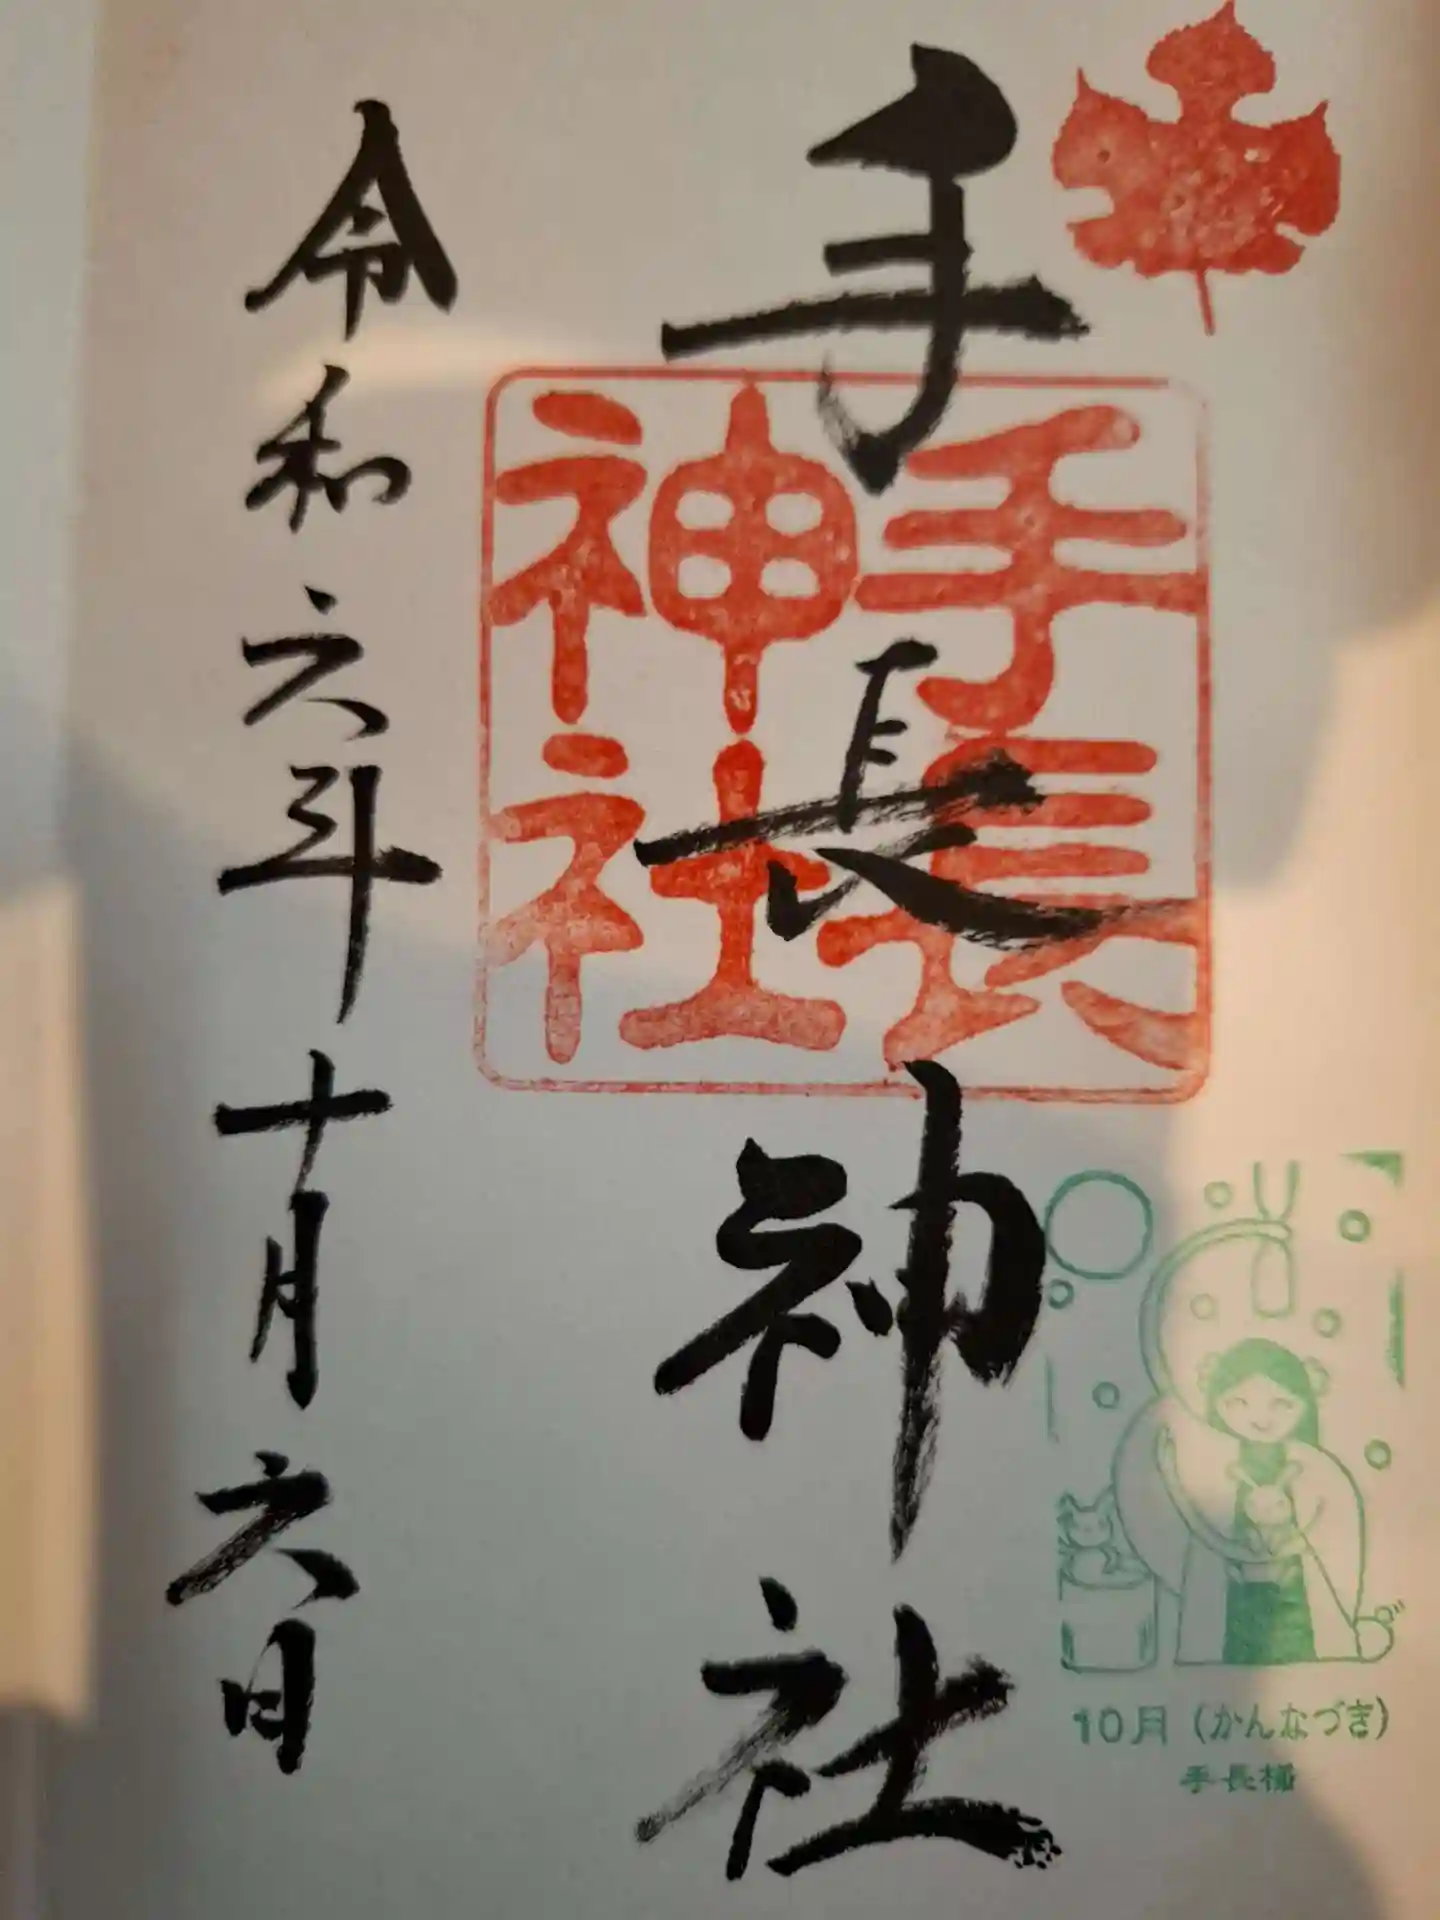 手長神社
手長
神社
令和六年十月六日
10月(かんなづき)
手長